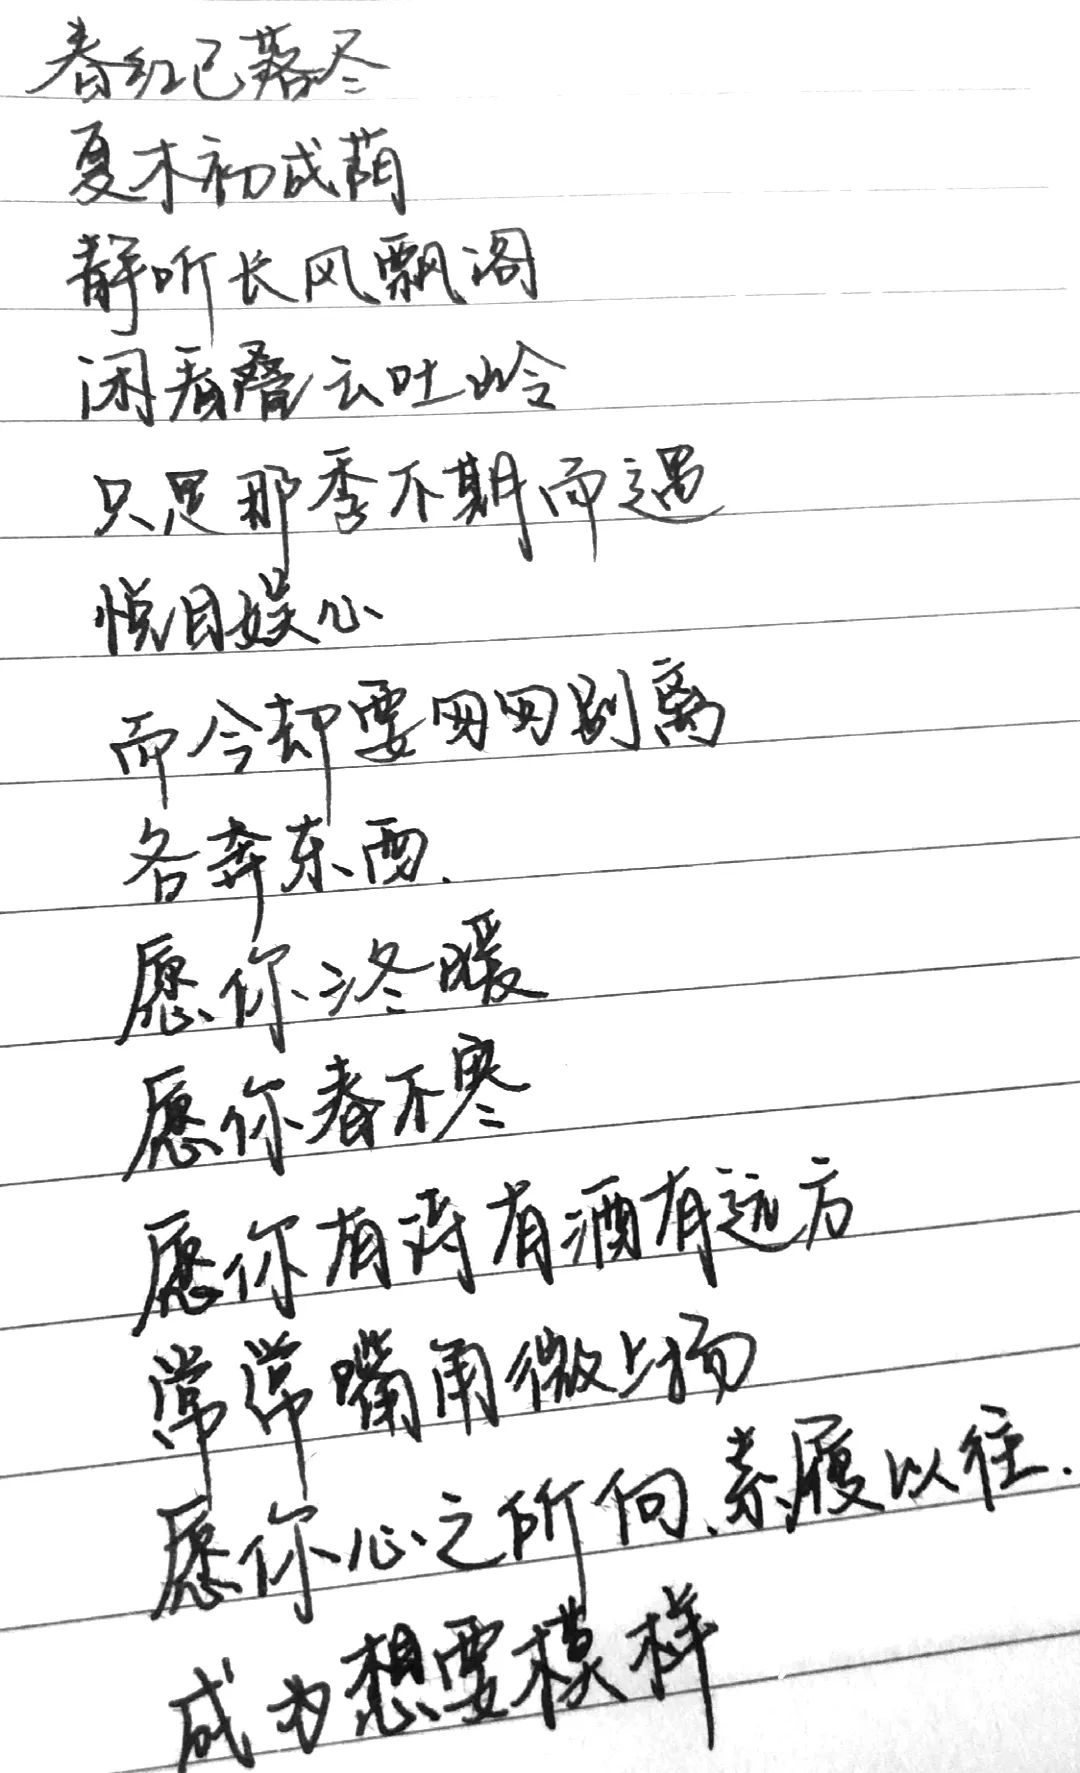 春红已落尽
夏木初成荫
静听长风飘阁
闲看叠云吐岭
只是那季不期而遇
悦目娱心
而今却要匆匆别离
各奔东西.
愿你冬暖
愿你春不寒
愿你有诗有酒有远方
常常嘴角微上扬
愿你心之所向、素履以往.
成为想要模样